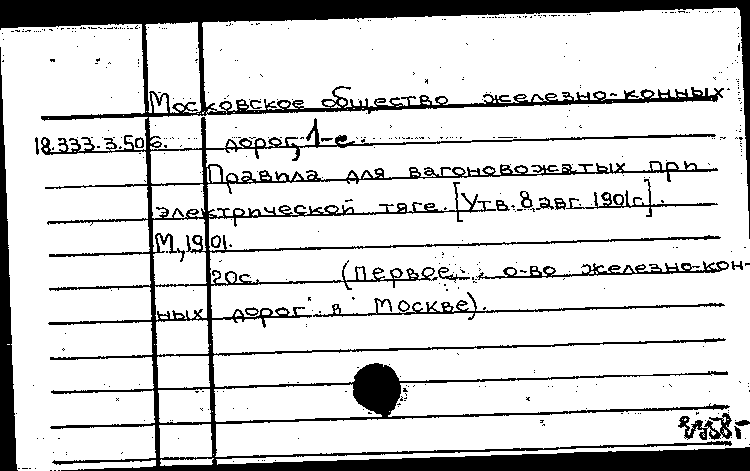 Московское общество железно-конных
18.333.3.50б. дорог, 1-е.
Правила для вагоновожатых при
электрической тяге. [Утв. 8 авг. 1901г.].
М., 1901.
20с. (Первое о-во железно-кон-
ных дорог в Москве).